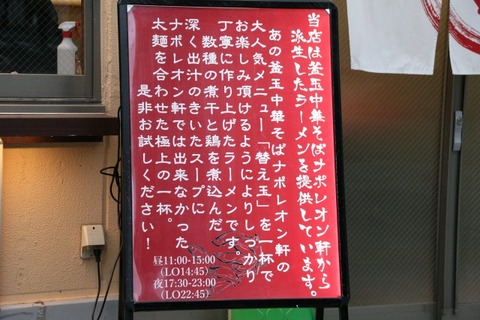 当店は釜玉中華そばナポレオン軒から
派生したラーメンを提供しています。
あの釜玉中華そばナポレオン軒の
大人気メニュー「替え玉」を一杯で
お楽しみ頂けるようによりしっかり
丁寧に作り上げたラーメンです。
数種の煮干と鶏を煮込んだ
深く出汁のきいたスープに
ナポレオン軒では出来なかった
太麺を合わせた極上の一杯。
是非お試しください！
昼11:00-15:00
(LO14:45)
夜17:30-23:00
(LO22:45)